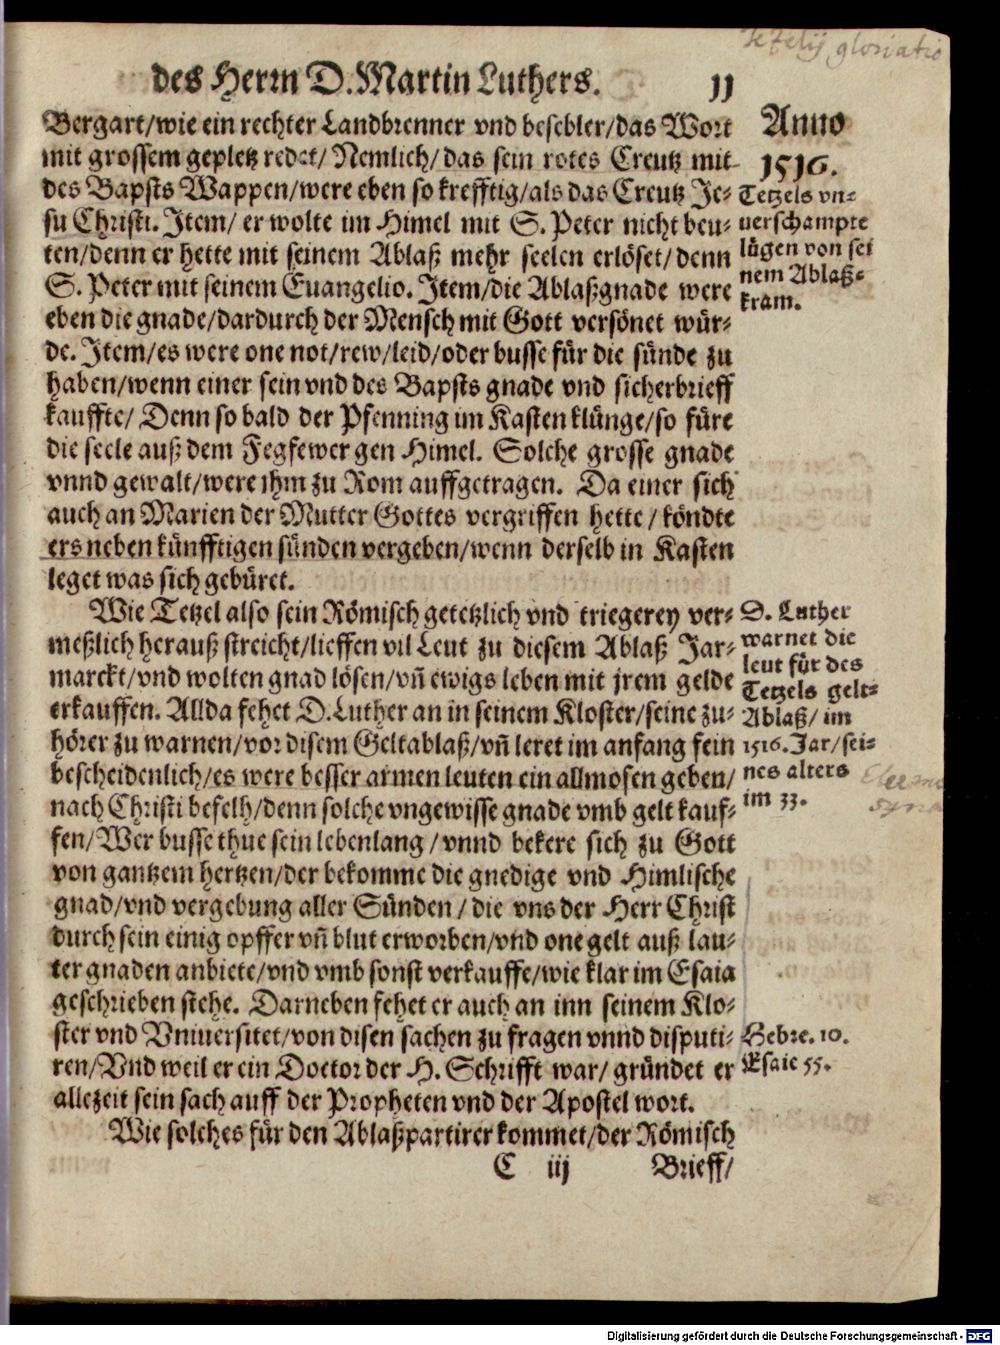 Tetzelij gloriatio
des Herrn D. Martin Luthers. 11
Bergart/wie ein rechter Landbrenner vnd besebler/das Wort
mit grossem gepletz redet/ Nemlich/ das sein rotes Creutz mit
des Bapsts Wappen/were eben so krefftig/als das Creutz Je-
su Christi. Item/ er wolte im Himel mit S. Peter nicht beu-
ten/denn er hette mit seinem Ablaß mehr seelen erlöset/denn
S. Peter mit seinem Euangelio. Item/die Ablaßgnade were
eben die gnade/dardurch der Mensch mit Gott versönet wür-
de. Item/es were one not/rew/leid/oder busse für die sünde zu
haben/wenn einer sein vnd des Bapsts gnade vnd sicherbrieff
kauffte/ Denn so bald der Pfenning im Kasten klünge/so füre
die seele auß dem Fegfewer gen Himel. Solche grosse gnade
vnnd gewalt/were jhm zu Rom auffgetragen. Da einer sich
auch an Marien der Mutter Gottes vergriffen hette/ köndte
ers neben künfftigen sünden vergeben/wenn derselb in Kasten
leget was sich gebüret.
Wie Tetzel also sein Römisch getetzlich vnd triegerey ver-
meßlich herauß streicht/lieffen vil Leut zu diesem Ablaß Jar-
marckt/vnd wolten gnad lösen/vñ ewigs leben mit jrem gelde
erkauffen. Allda fehet D. Luther an in seinem Kloster/seine zu-
hörer zu warnen/vor disem Geltablaß/vñ leret im anfang fein
bescheidenlich/es were besser armen leuten ein allmosen geben/
nach Christi befelh/denn solche vngewisse gnade vmb gelt kauf-
fen/Wer busse thue sein lebenlang/vnnd bekere sich zu Gott
von gantzem hertzen/der bekomme die gnedige vnd Himlische
gnad/vnd vergebung aller Sünden/ die vns der Herr Christ
durch sein einig opffer vñ blut erworben/vnd one gelt auß lau-
ter gnaden anbiete/vnd vmb sonst verkauffe/wie klar im Esaia
geschrieben stehe. Darneben fehet er auch an inn seinem Klo-
ster vnd Vniuersitet/von disen sachen zu fragen vnnd disputi-
ren/Vnd weil er ein Doctor der H. Schrifft war/ gründet er
allezeit sein sach auff der Propheten vnd der Apostel wort.
Wie solches für den Ablaßpartirer kommet/der Römisch
C iij Brieff/
Anno
1516.
Tetzels vn-
uerschampte
lügen von sei
nem Ablaß-
kram.
D. Luther
warnet die
leut für des
Tetzels gelt-
Ablaß/ im
1516. Jar/sei-
nes alters
im 33.
Eleemo
syna
Hebre. 10.
Esaie 55.
Digitalisierung gefördert durch die Deutsche Forschungsgemeinschaft - DFG